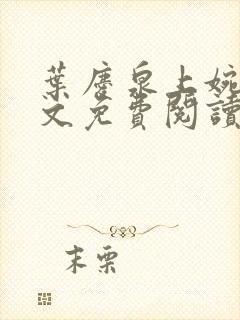 葉塵泉上婉
文免費閱讀
末栗